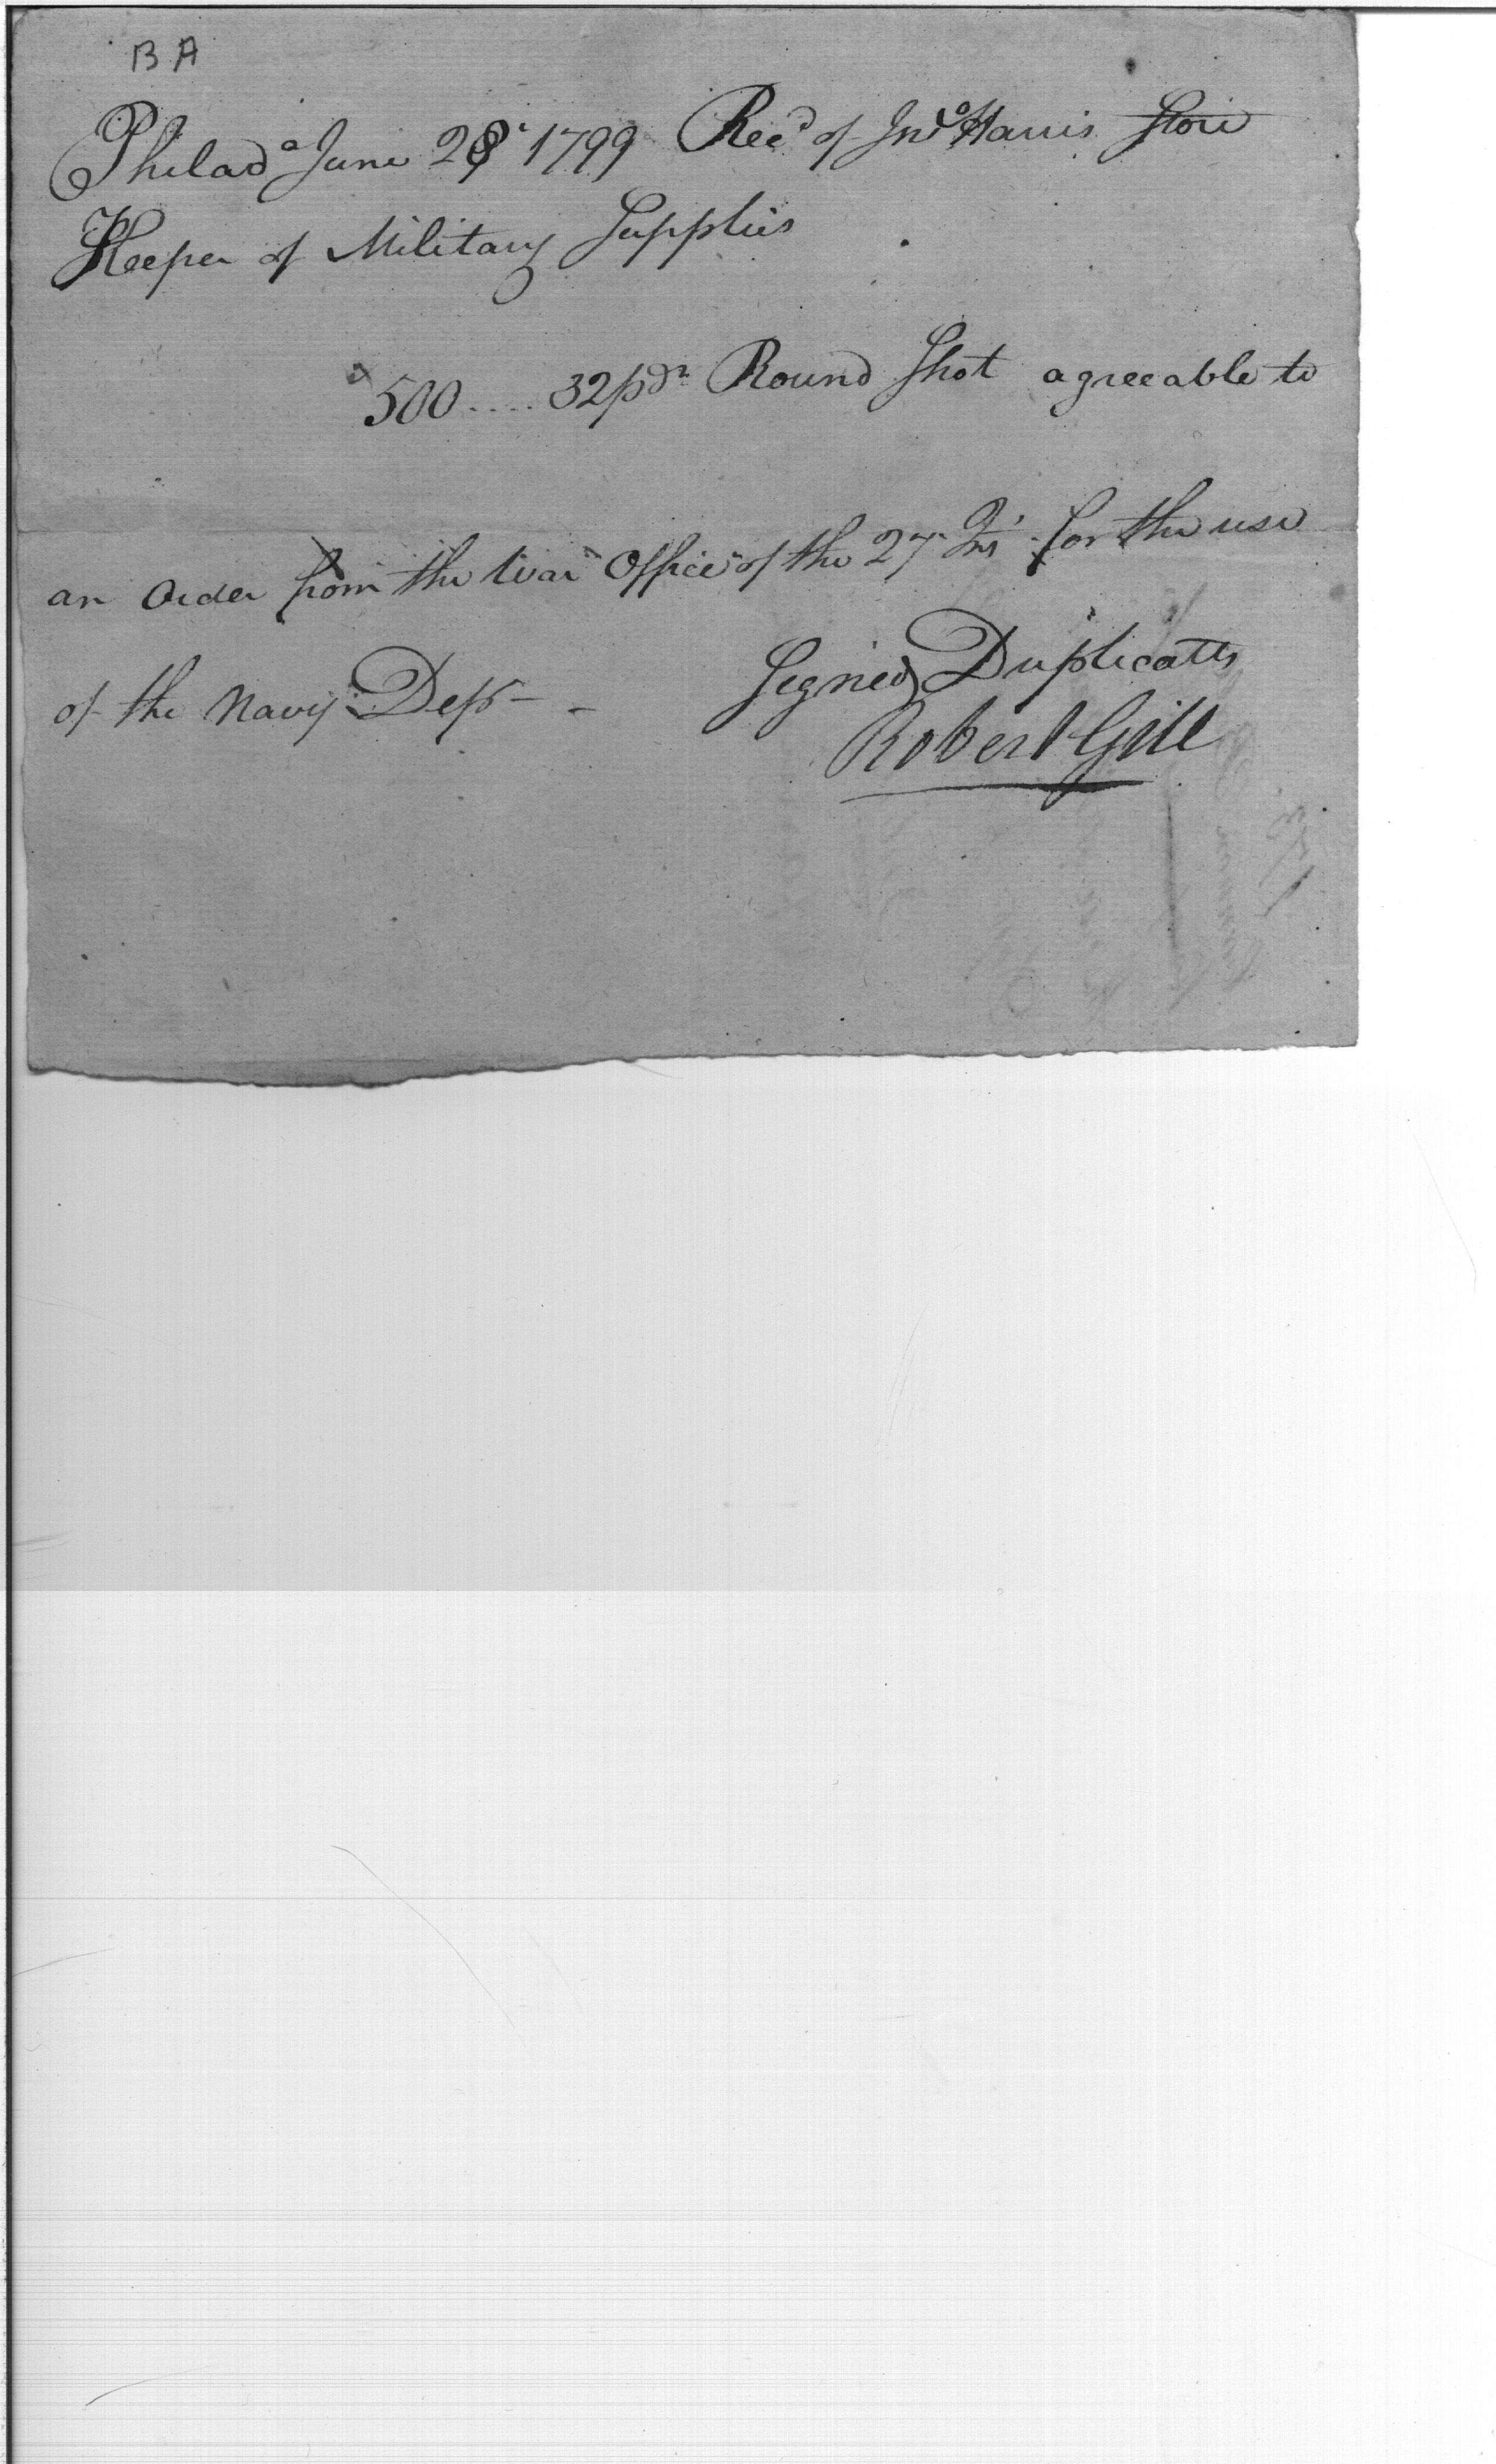 BA
Philad.a June 28 1799 Recd of Jno Harris Store
Keeper of Military Supplies
500 .... 32 pdr Round Shot agreeable to
an Order from the War Office of the 27 Inst for the use
of the Navy Dep - -
Signed Duplicates
Robert Gill